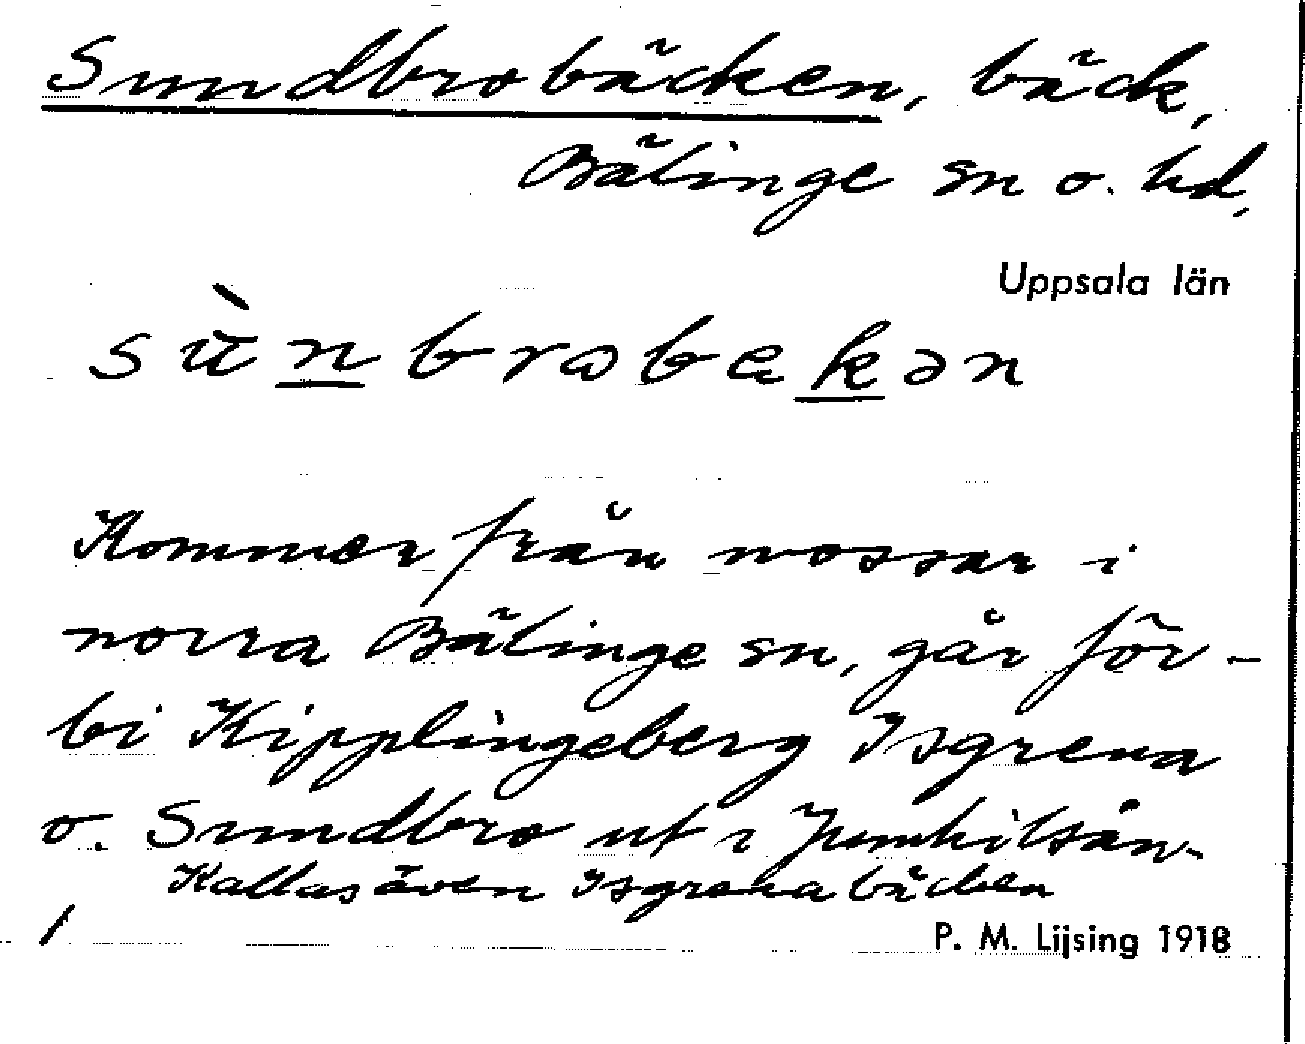 Sundbrobäcken, bäck,
Bälinge sn o. hd,
Uppsala län
sùnbrobekən
Kommer från mossar i
norra Bälinge sn, går för-
bi Kipplingeberg Isgrena
o. Sundbro ut i Jumkilsån.
Kallas även Isgrenabäcken
P. M. Lijsing 1918